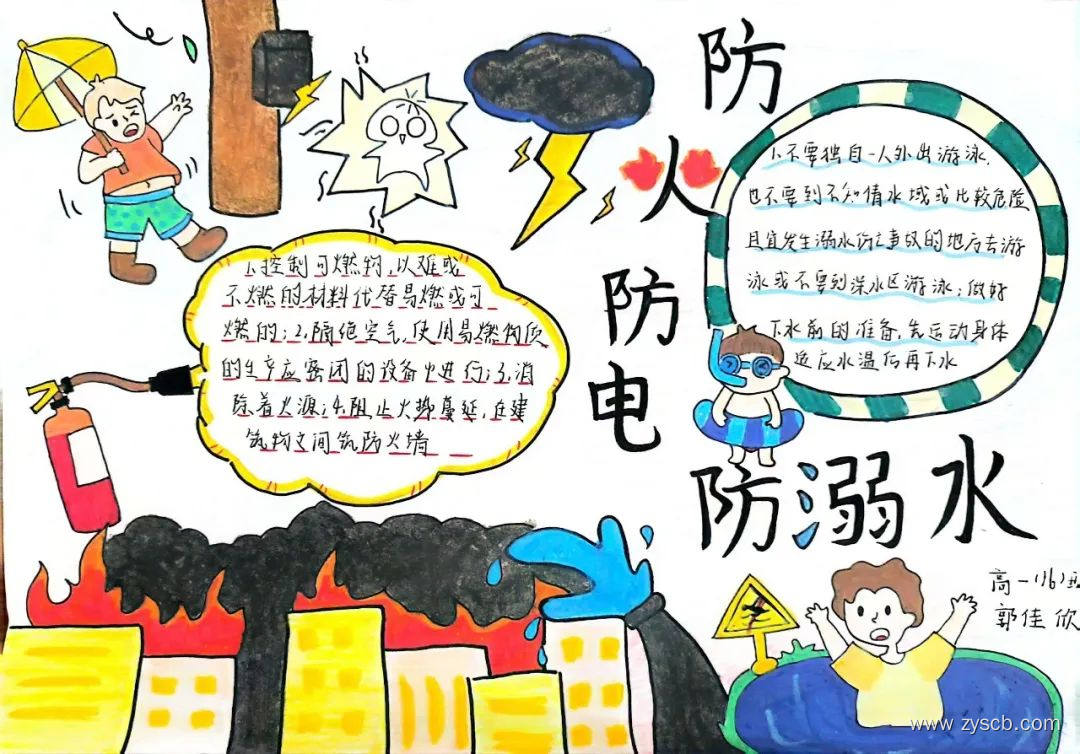 防
火
防
电
防溺水
1、不要独自一人外出游泳,
也不要到不知情水域或比较危险
且宜发生溺水伤亡事故的地方去游
泳或不要到深水区游泳;做好
下水前的准备,先运动身体
适应水温后再下水
1、控制可燃物,以难或
不燃的材料代替易燃或可
燃的;2、隔绝空气,使用易燃物质
的生产应密闭的设备中进行;3、消
除着火源;4、阻止火势蔓延,在建
筑物之间筑防火墙
高一(16)班
郭佳欣
www.zyscb.com